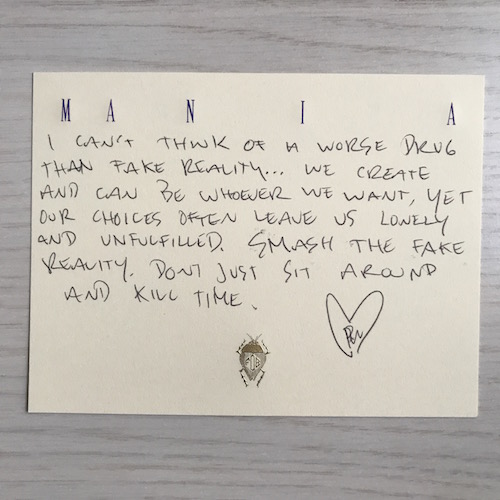 M A N I A
I CAN'T THINK OF A WORSE DRUG
THAN FAKE REALITY... WE CREATE
AND CAN BE WHOEVER WE WANT, YET
OUR CHOICES OFTEN LEAVE US LONELY
AND UNFULFILLED. SMASH THE FAKE
REALITY. DON'T JUST SIT AROUND
AND KILL TIME.